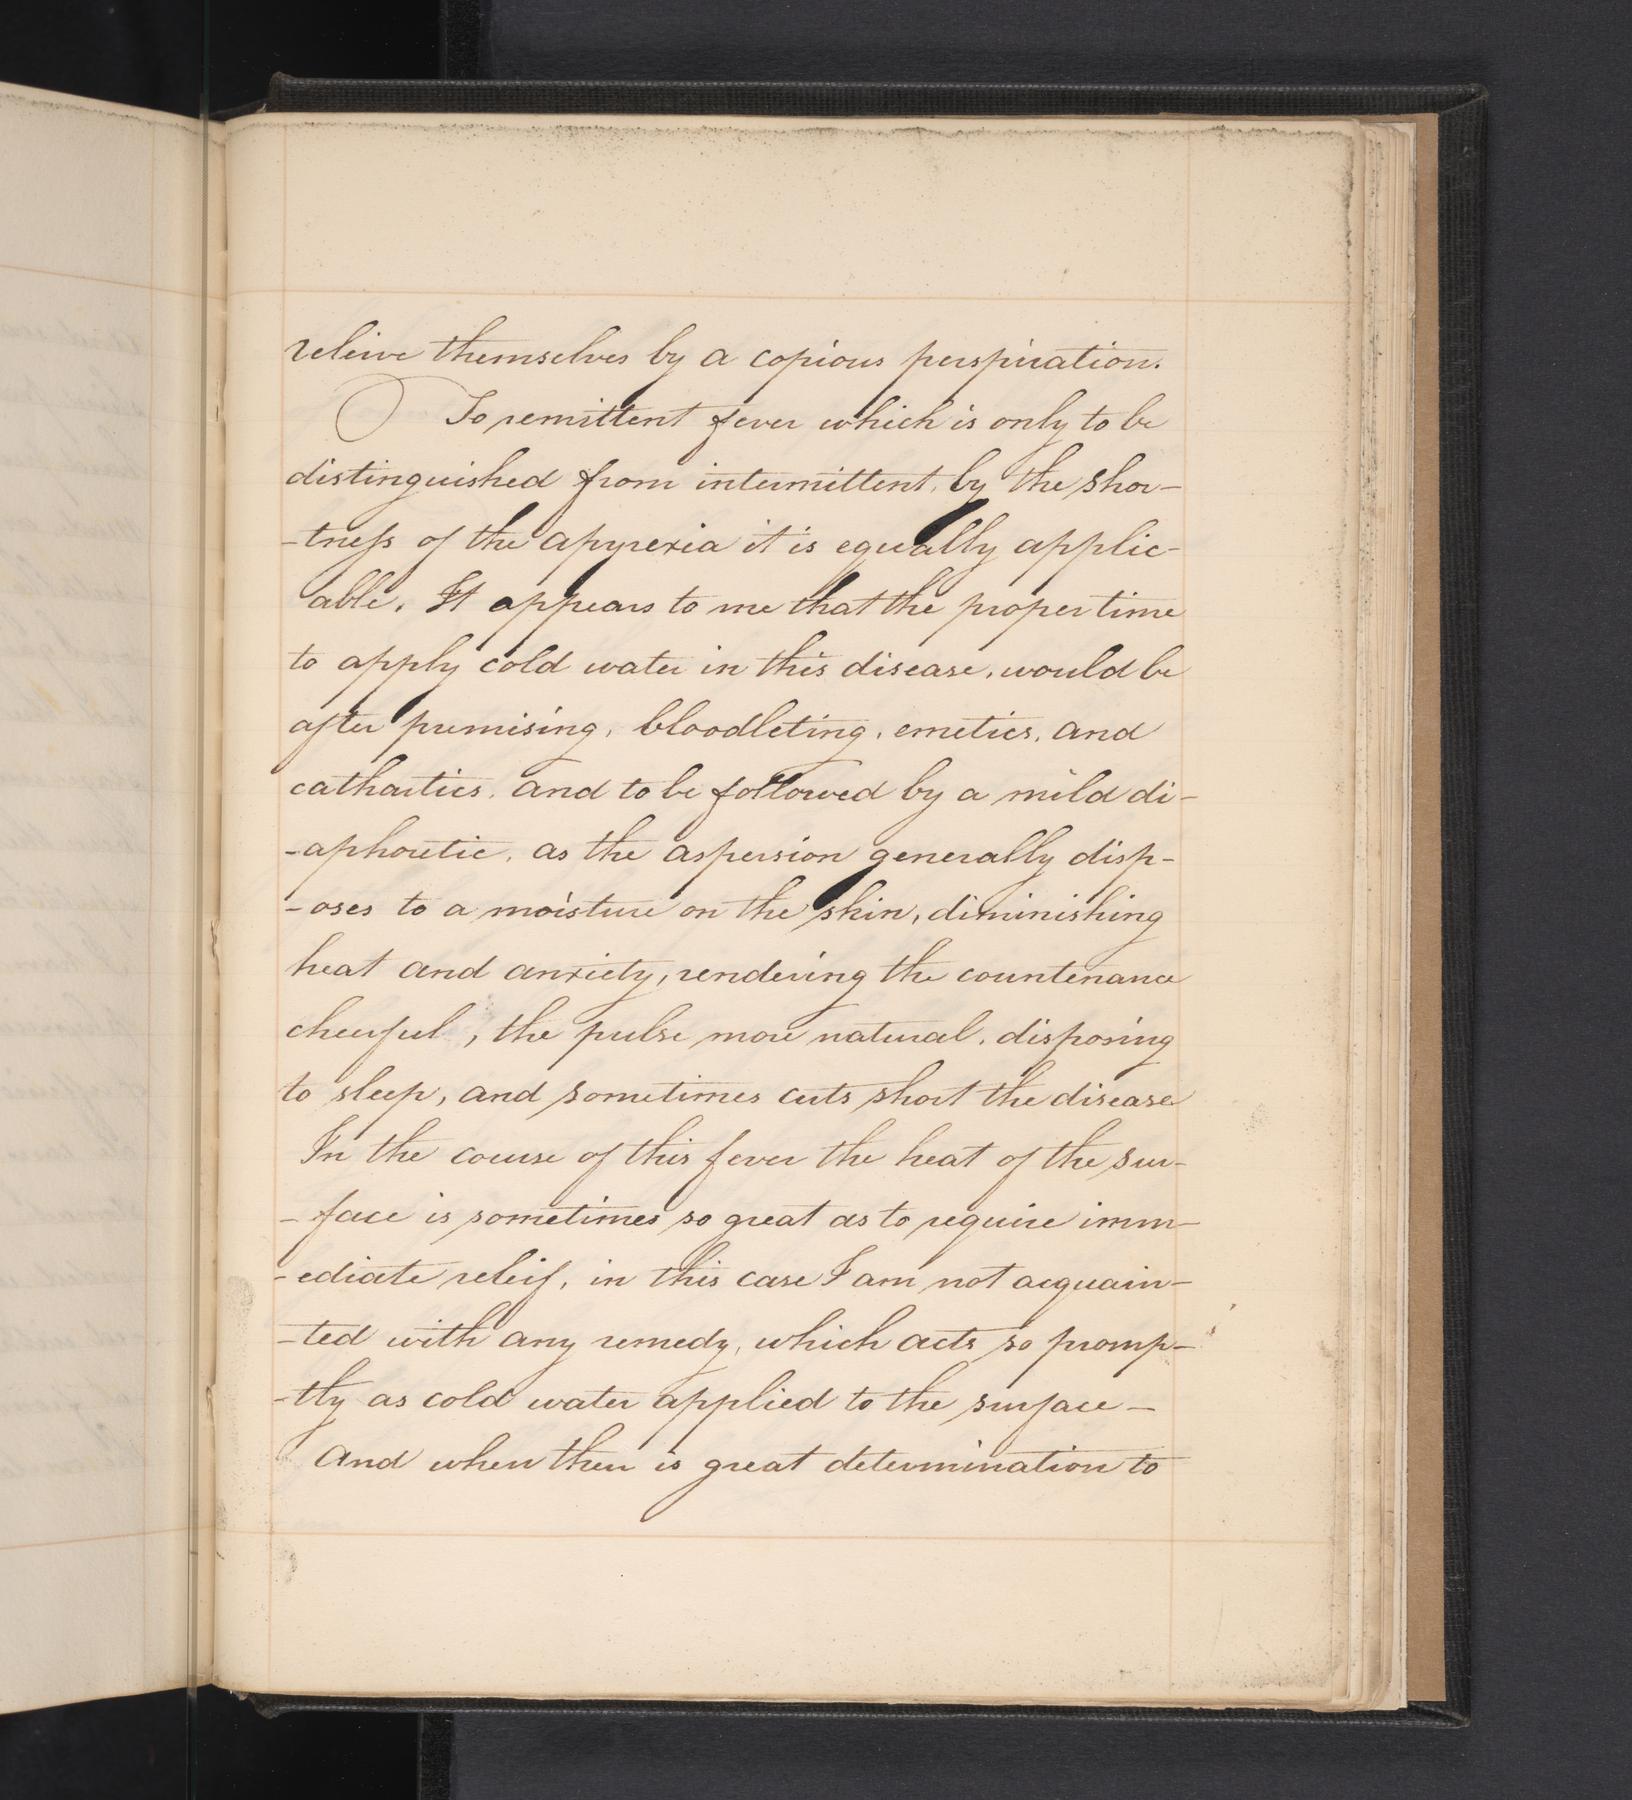 releive themselves by a copious perspiration.
To remittent fever which is only to be
distinguished from intermittent, by the shor-
-tness of the apyrexia it is equally applic-
able. It appears to me that the proper time
to apply cold water in this disease, would be
after premising, bloodleting, emetics, and
cathartics, and to be followed by a mild di-
-aphoretic, as the aspersion generally disp-
-oses to a moisture on the skin, diminishing
heat and anxiety, rendering the countenance
cheerful, the pulse more natural, disposing
to sleep, and sometimes cuts short the disease
In the course of this fever the heat of the sur-
-face is sometimes so great as to require imm-
-ediate releif, in this case I am not acquain-
-ted with any remedy, which acts so promp-
-tly as cold water applied to the surface -
And when there is great determination to